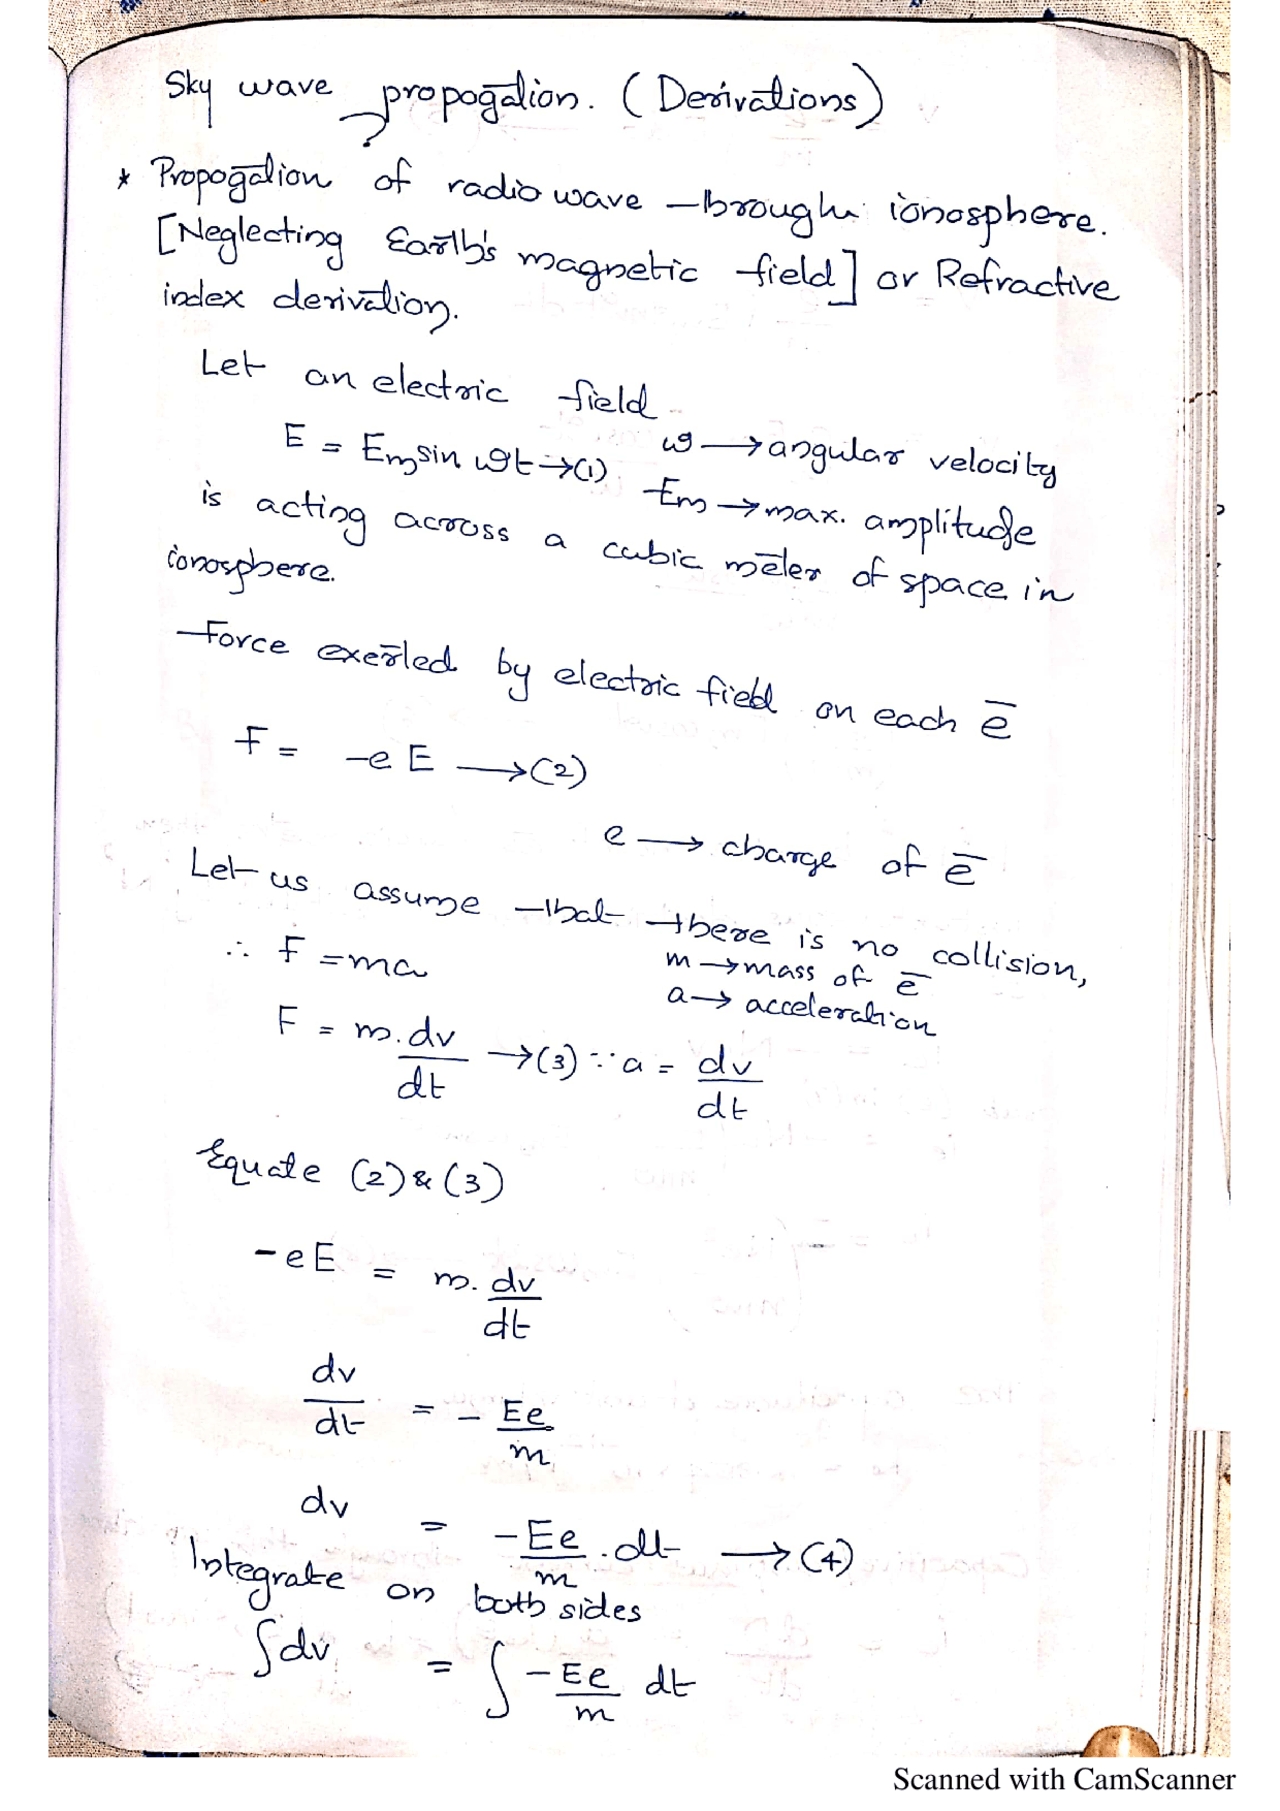 Sky wave propogation. (Derivations)
* Propogation of radio wave through ionosphere.
[Neglecting Earth's magnetic field] or Refractive
index derivation.
Let an electric field
E = Em sin ωt →(1) ω → angular velocity
Em → max. amplitude
is acting across a cubic meter of space in
ionosphere.
Force exerted by electric field on each e̅
F = -e E ⟶(2)
e ⟶ charge of e̅
Let us assume that there is no collision,
∴ F = ma m → mass of e̅
a → acceleration
F = m. dv/dt →(3) ∵ a = dv/dt
Equate (2) & (3)
-eE = m. dv/dt
dv/dt = - Ee/m
dv = -Ee/m . dt ⟶(4)
Integrate on both sides
∫dv = ∫ -Ee/m dt
Scanned with CamScanner